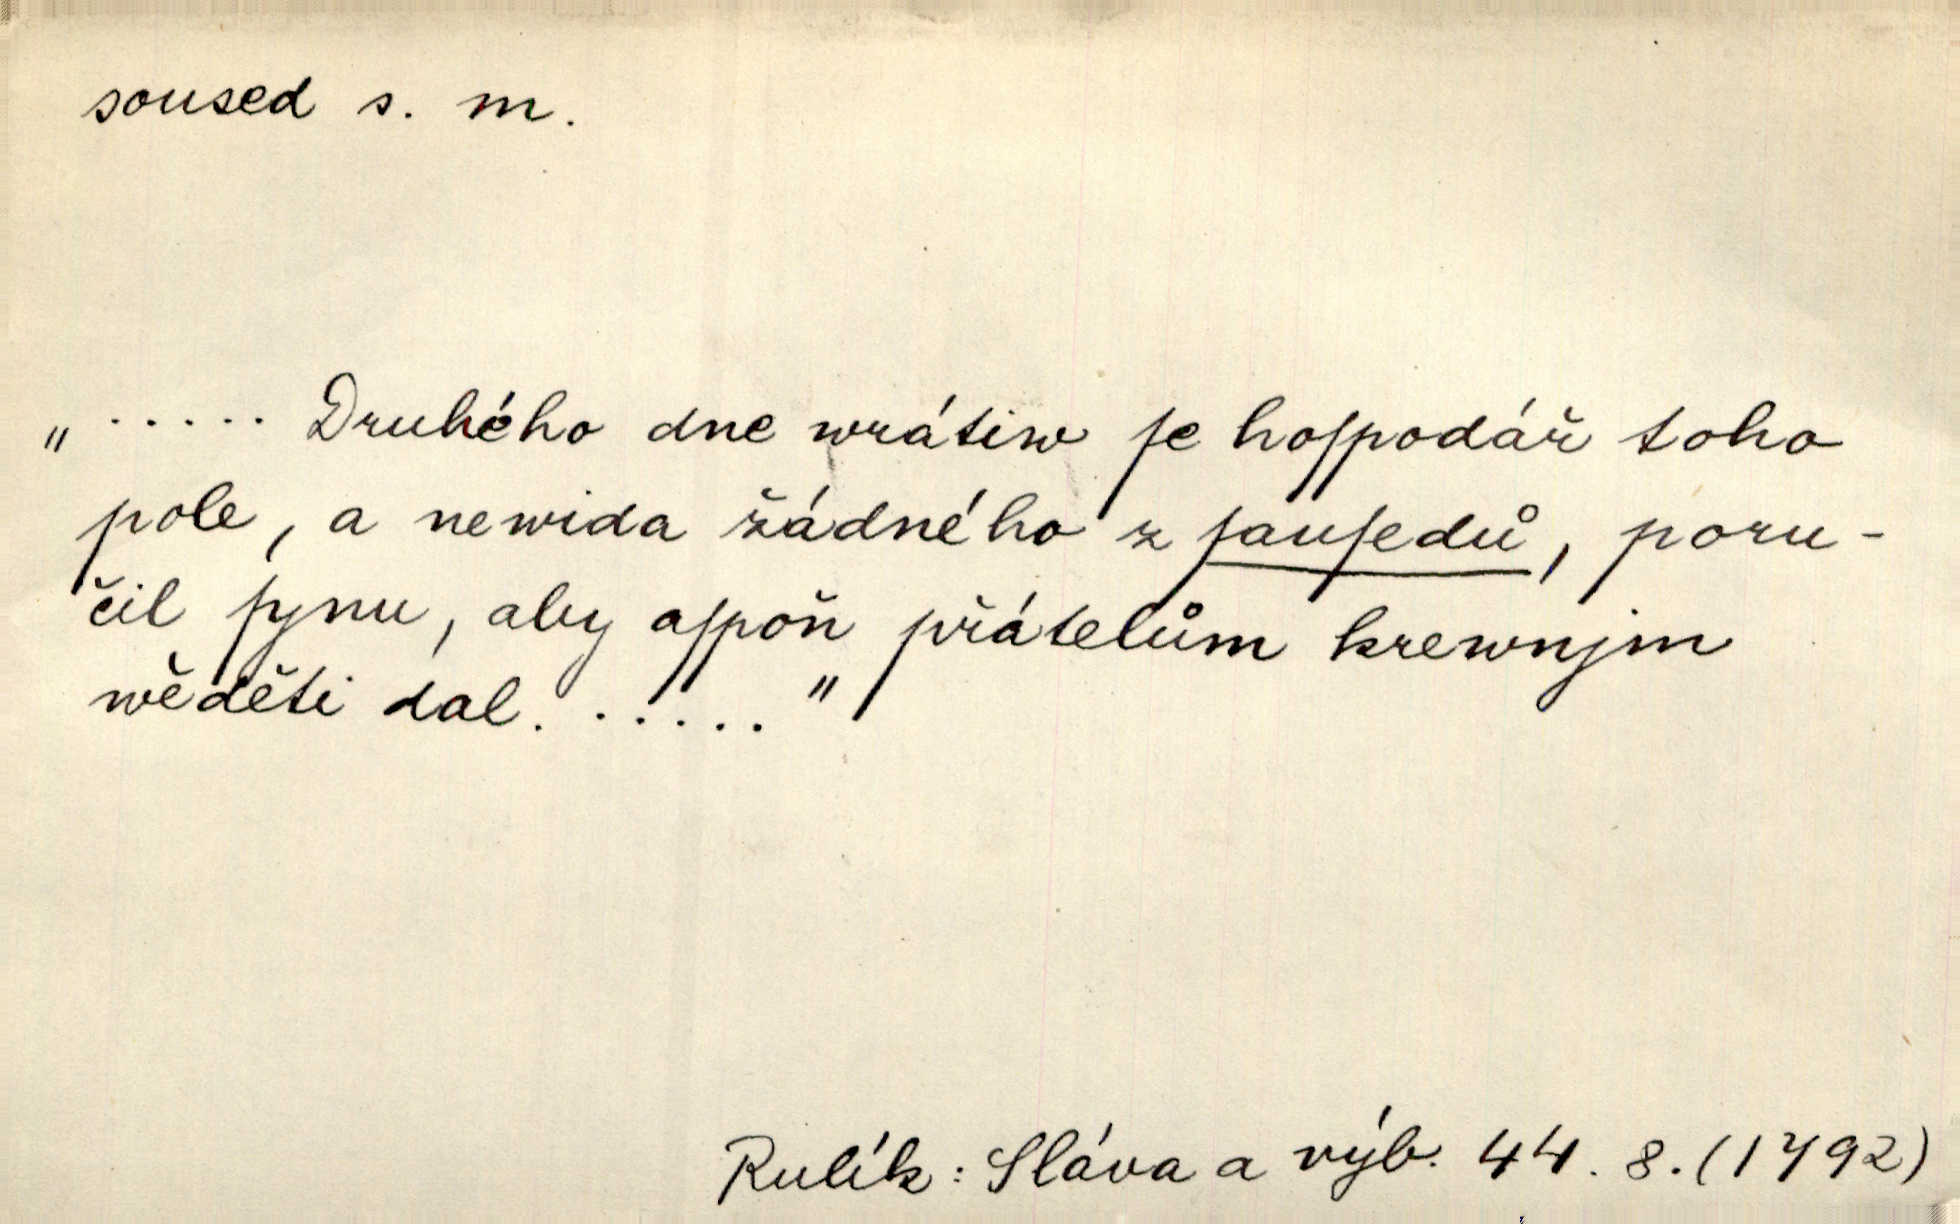 soused s. m.
„ ..... Druhého dne wrátiw ſe hoſpodář toho
pole, a newida žádného z ſauſedů, poru-
čil ſynu, aby aſpoň přátelům krewnjm
wěděti dal. ..... "
Rulík: Sláva a výb. 44. 8. (1792)